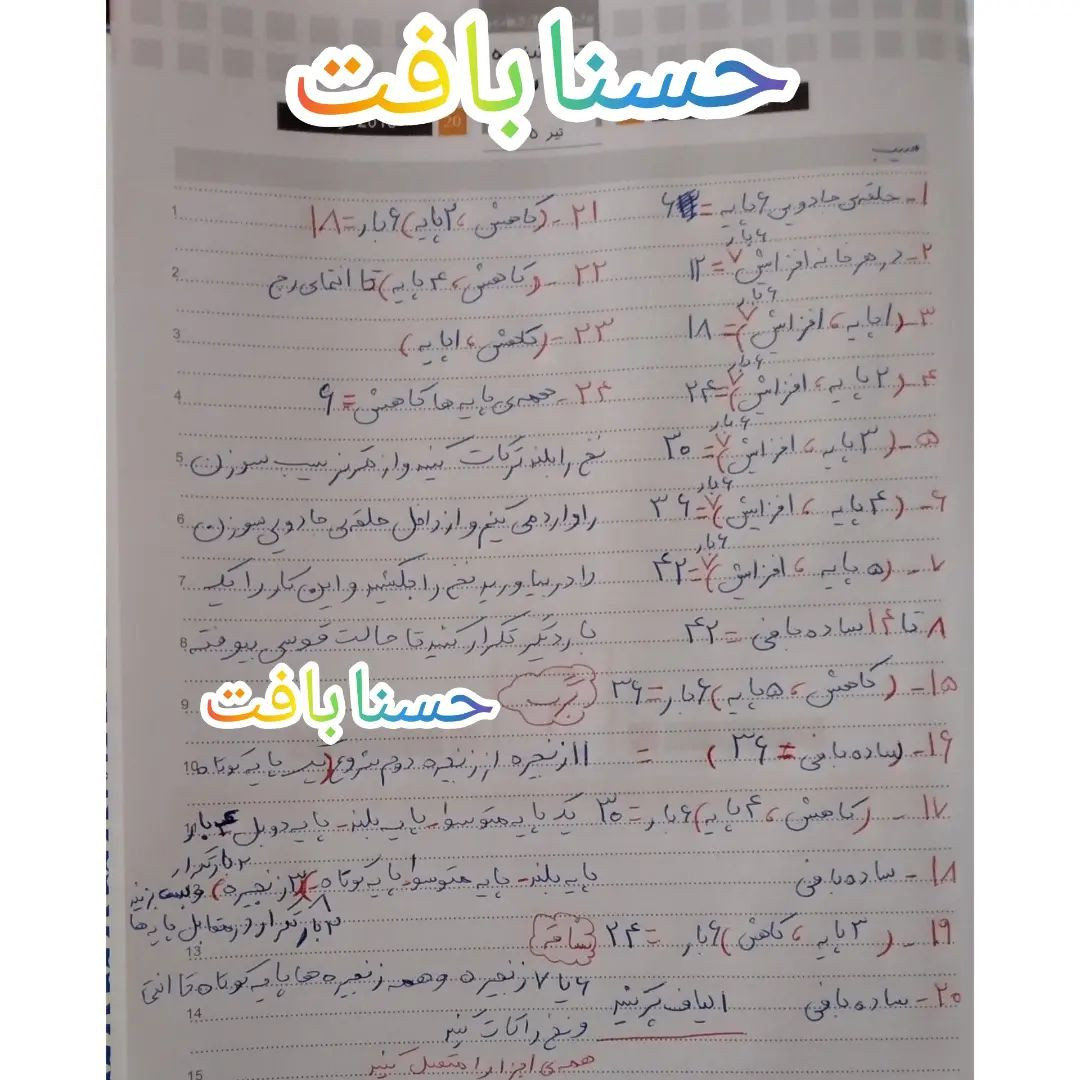 حسنا بافت
20
تیر
سیب
۱- حلقه‌ی جادویی ۶ پایه = ۶
۲- در هر خانه افزایش ۷ = ۱۲
۶ بار
۳- (۱ پایه، افزایش) ۷ = ۱۸
۶ بار
۴- (۲ پایه، افزایش) ۷ = ۲۴
۶ بار
۵- (۳ پایه، افزایش) ۷ = ۳۰
۶ بار
۶- (۴ پایه، افزایش) ۷ = ۳۶
۶ بار
۷- (۵ پایه، افزایش) ۷ = ۴۲
۶ بار
۸ تا ۱۴ ساده بافی = ۴۲
۱۵- (کاهش، ۵ پایه) ۶ بار = ۳۶
۱۶- (ساده بافی = ۳۶)
۱۷- (کاهش، ۴ پایه) ۶ بار = ۳۰
۱۸- ساده بافی
۱۹- (۳ پایه، کاهش) ۶ بار = ۲۴
۲۰- ساده بافی الیاف پر کنید
۲۱- (کاهش، ۲ پایه) ۶ بار = ۱۸
۲۲- (کاهش، ۴ پایه) تا انتهای رج
۲۳- (کاهش، ۱ پایه)
۲۴- همه‌ی پایه ها کاهش = ۶
نخ را بلند تر کات کنید و از مرکز سیب سوزن
را وارد می کنیم و از داخل حلقه‌ی جادویی سوزن
را در بیاورید نخ را بکشید و این کار را یک
بار دیگر تکرار کنید تا حالت قوسی بیوفته
حسنا بافت
برگ
= ۱۱ زنجیره از زنجیره دوم شروع (یک پایه کوتاه
یک پایه متوسط - پایه بلند - پایه دوبل
۲ بار تکرار
پایه بلند - پایه متوسط - پایه کوتاه - (۳ زنجیره)
تکرار در مقابل پایه ها
ساقه
۶ یا ۷ زنجیره و همه زنجیره ها پایه کوتاه تا
و نخ را کات کنید
همه ی اجزا را متصل کنید
1
2
3
4
5
6
7
8
9
10
13
14
15